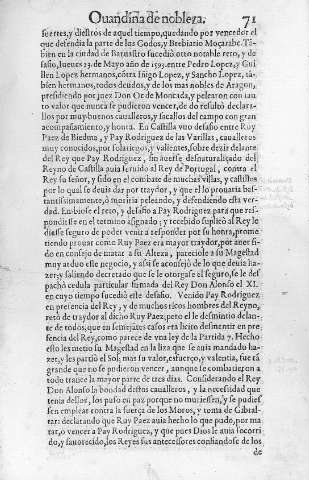 Quandiña de nobleza. 71
fuertes, y diestros de aquel tiempo, quedando por vencedor el
que defendia la parte de los Godos, y Brebiario Moçarabe. Tã-
bien en la ciudad de Barbastro sucediò otro notable reto, y de-
safio, Iueves 23. de Mayo año de 1593. entre Pedro Lopez, y Gui-
llen Lopez hermanos, côtra Iñigo Lopez, y Sancho Lopez, tã-
bien hermanos, todos deudos, y de los mas nobles de Aragon,
presidiendo por juez Don Ot de Moncada, y pelearon con tan-
to valor que nunca se pudieron vencer, de do resultò declara-
llos por muy buenos cavalleros, y sacallos del campo con gran
acompañamiento, y honra. En Castilla vuo desafio entre Ruy
Paez de Biedma, y Pay Rodriguez de las Varillas, cavalleros
muy conocidos, por solariegos, y valientes, sobre dezir delante
del Rey que Pay Rodriguez, sin averse desnaturaliçado del
Reyno de Castilla auia seruido al Rey de Portugal, contra el
Rey su señor, y sido en el combate de muchas villas, y castillos
por lo qual se devia dar por traydor, y que el lo provaria bas-
tantissimamente, ò moriria peleando, y defendiendo esta ver-
dad. Embiose el reto, y desafio a Pay Rodriguez para que res-
pondiesse en el termino asignado; y recebido suplicò al Rey le
diesse seguro de poder venir a responder por su honra, prome
tiendo provar como Ruy Paez era mayor traydor, por aver si-
do en consejo de matar a su Alteza, pareciole a su Magestad
muy arduo este negocio, y assi se aconsejò de lo que devia ha-
zer, y saliendo decretado que se le otorgasse el seguro, se le des-
pachò cedula particular firmada del Rey Don Alonso el XI.
en cuyo tiempo sucediò este desafio. Venido Pay Rodriguez
en presencia del Rey, y de muchos ricos hombres del Reyno,
retò de traydor al dicho Ruy Paez, pero el le desmintio delan-
te de todos, que en semejates casos era licito desmentir en pre-
sencia del Rey, como parece de vna ley de la Partida 7. Hecho
esto les metio su Magestad en la liza que se auia mandado ha-
zer, y les partio el Sol; mas su valor, esfuerço, y valentia, fue tã
grande que no se pudieron vencer, aunque se combatieron a
todo trance la mayor parte de tres dias. Considerando el Rey
Don Alonso la bondad destos cavalleros, y la necessidad que
tenia dellos, los puso en paz porque no muriessen, y se pudies-
sen emplear contra la fuerça de los Moros, y toma de Gibral-
tar: declarando que Ruy Paez auia hecho lo que pudo, por ma-
tar, o vencer a Pay Rodriguez, y que pues Dios le auia socorri-
do, y favorecido, los Reyes sus antecessores confiandose de los
de